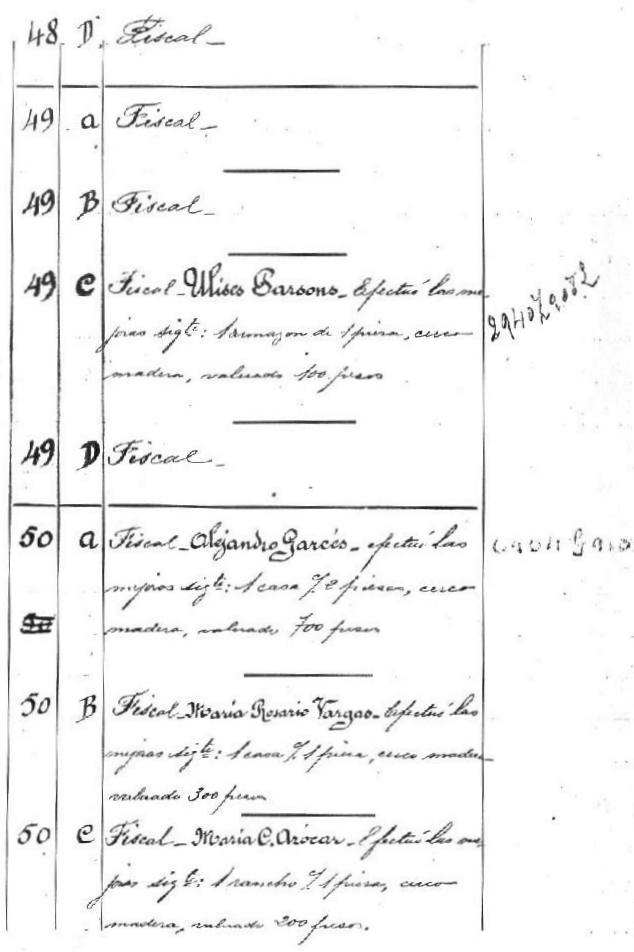 48 D. Fiscal_
49 a Fiscal_
49 B Fiscal_
49 C Fiscal_Ulises Parsons_Efectuó las me-
joras sigte: 1 armazon de 1 pieza, cerco
madera, valuado 100 pesos
49 D Fiscal_
50 a Fiscal_Alejandro Garcés_efectuó las
mejoras sigte: 1 casa % 2 piezas, cerco
madera, valuado 700 pesos
50 B Fiscal_María Rosario Vargas_Efectuó las
mejoras sigte: 1 casa % 1 pieza, cerco madera
valuado 300 pesos
50 C Fiscal_María C. Arócar_Efectuó las me-
joras sigte: 1 rancho % 1 pieza, cerco
madera, valuado 200 pesos.